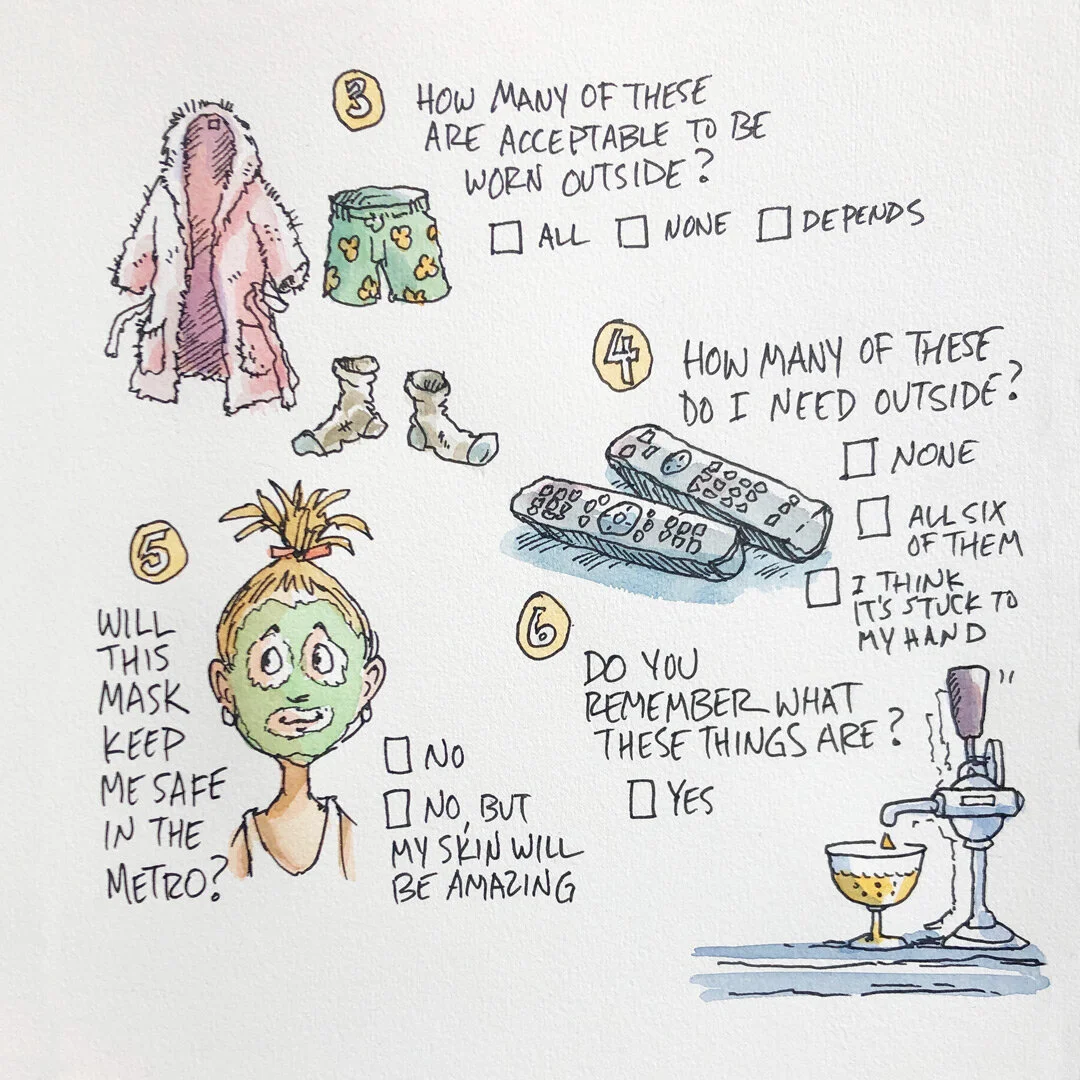 3
HOW MANY OF THESE
ARE ACCEPTABLE TO BE
WORN OUTSIDE?
☐ ALL ☐ NONE ☐ DEPENDS
4
HOW MANY OF THESE
DO I NEED OUTSIDE?
☐ NONE
☐ ALL SIX
OF THEM
☐ I THINK
IT'S STUCK TO
MY HAND
5
WILL
THIS
MASK
KEEP
ME SAFE
IN THE
METRO?
☐ NO
☐ NO, BUT
MY SKIN WILL
BE AMAZING
6
DO YOU
REMEMBER WHAT
THESE THINGS ARE?
☐ YES